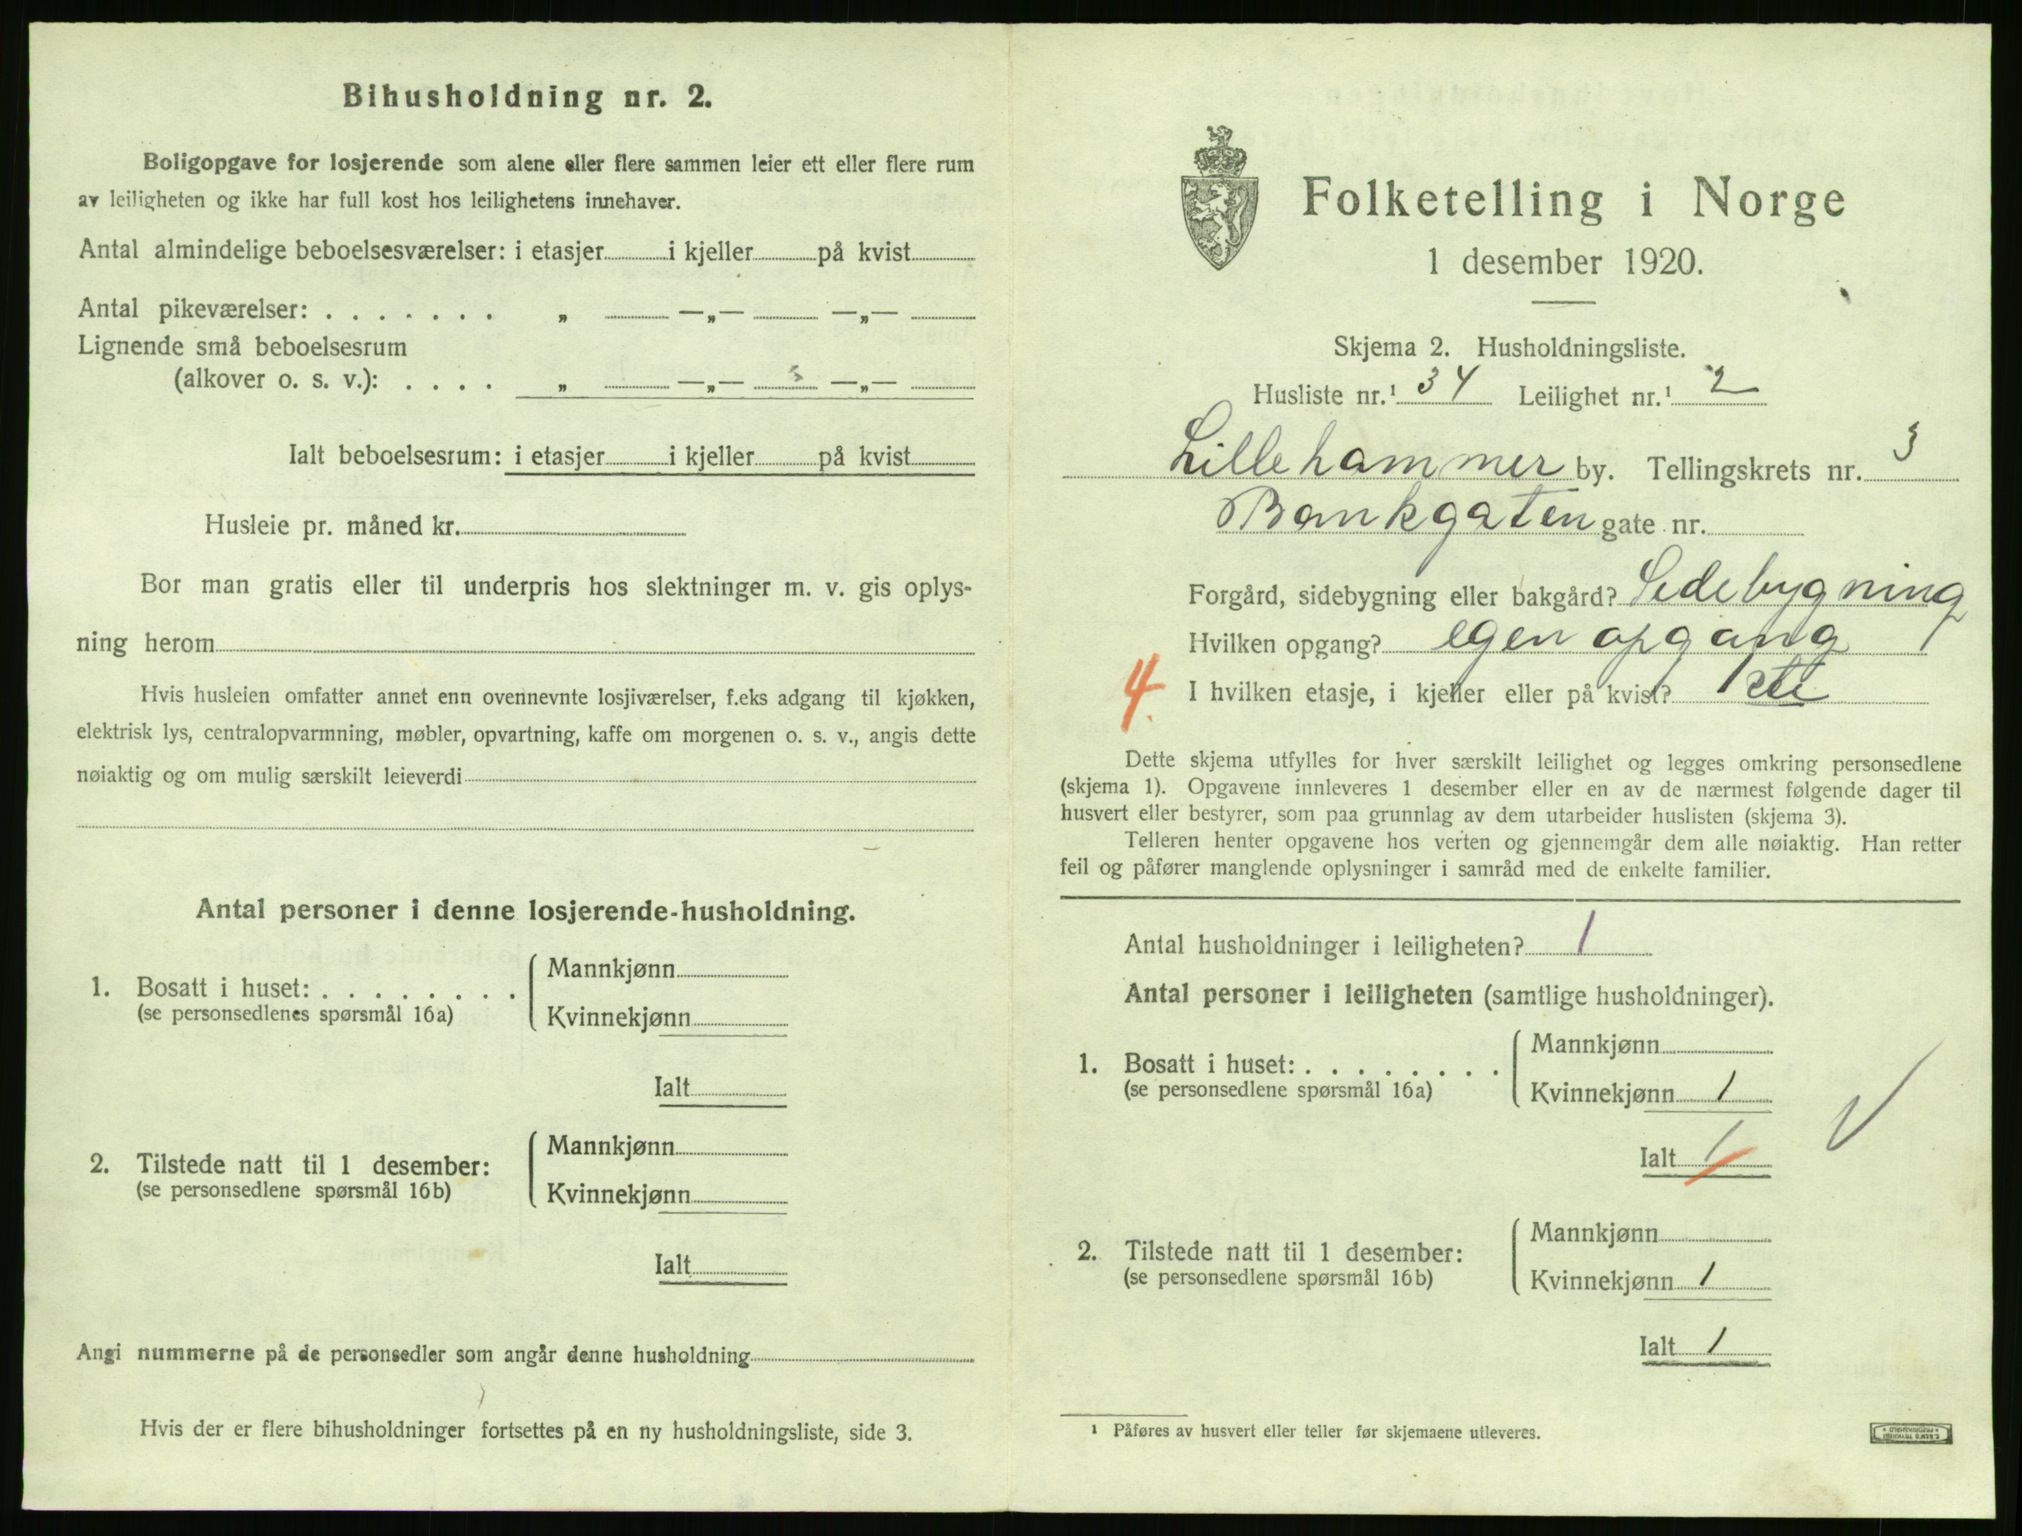 Bihusholdning nr. 2.
Boligopgave for losjerende som alene eller flere sammen leier ett eller flere rum
av leiligheten og ikke har full kost hos leilighetens innehaver.
Antal almindelige beboelsesværelser: i etasjer i kjeller på kvist
Antal pikeværelser: . . . . . . . „ —„— —„—
Lignende små beboelsesrum
(alkover o. s. v.): . . . . „ —„— —„—
Ialt beboelsesrum: i etasjer i kjeller på kvist
Husleie pr. måned kr.
Bor man gratis eller til underpris hos slektninger m. v. gis oplys-
ning herom
Hvis husleien omfatter annet enn ovennevnte losjiværelser, f.eks adgang til kjøkken,
elektrisk lys, centralopvarmning, møbler, opvartning, kaffe om morgenen o. s. v., angis dette
nøiaktig og om mulig særskilt leieverdi
Antal personer i denne losjerende-husholdning.
1. Bosatt i huset: . . . . . . . .
(se personsedlenes spørsmål 16a)
Mannkjønn
Kvinnekjønn
Ialt
2. Tilstede natt til 1 desember:
(se personsedlene spørsmål 16b)
Mannkjønn
Kvinnekjønn
Ialt
Angi nummerne på de personsedler som angår denne husholdning
Hvis der er flere bihusholdninger fortsettes på en ny husholdningsliste, side 3.
Folketelling i Norge
1 desember 1920.
Skjema 2. Husholdningsliste.
Husliste nr.¹ 34 Leilighet nr.¹ 2
Lillehammer by. Tellingskrets nr. 3
Bankgaten gate nr.
Forgård, sidebygning eller bakgård? Sidebygning
Hvilken opgang? egen opgang
4. I hvilken etasje, i kjeller eller på kvist? 1ste
Dette skjema utfylles for hver særskilt leilighet og legges omkring personsedlene
(skjema 1). Opgavene innleveres 1 desember eller en av de nærmest følgende dager til
husvert eller bestyrer, som paa grunnlag av dem utarbeider huslisten (skjema 3).
Telleren henter opgavene hos verten og gjennemgår dem alle nøiaktig. Han retter
feil og påfører manglende oplysninger i samråd med de enkelte familier.
Antal husholdninger i leiligheten? 1
Antal personer i leiligheten (samtlige husholdninger).
1. Bosatt i huset: . . . . . . . .
(se personsedlene spørsmål 16a)
Mannkjønn
Kvinnekjønn 1
Ialt 1
2. Tilstede natt til 1 desember:
(se personsedlene spørsmål 16b)
Mannkjønn
Kvinnekjønn 1
Ialt 1
¹ Påføres av husvert eller teller før skjemaene utleveres.